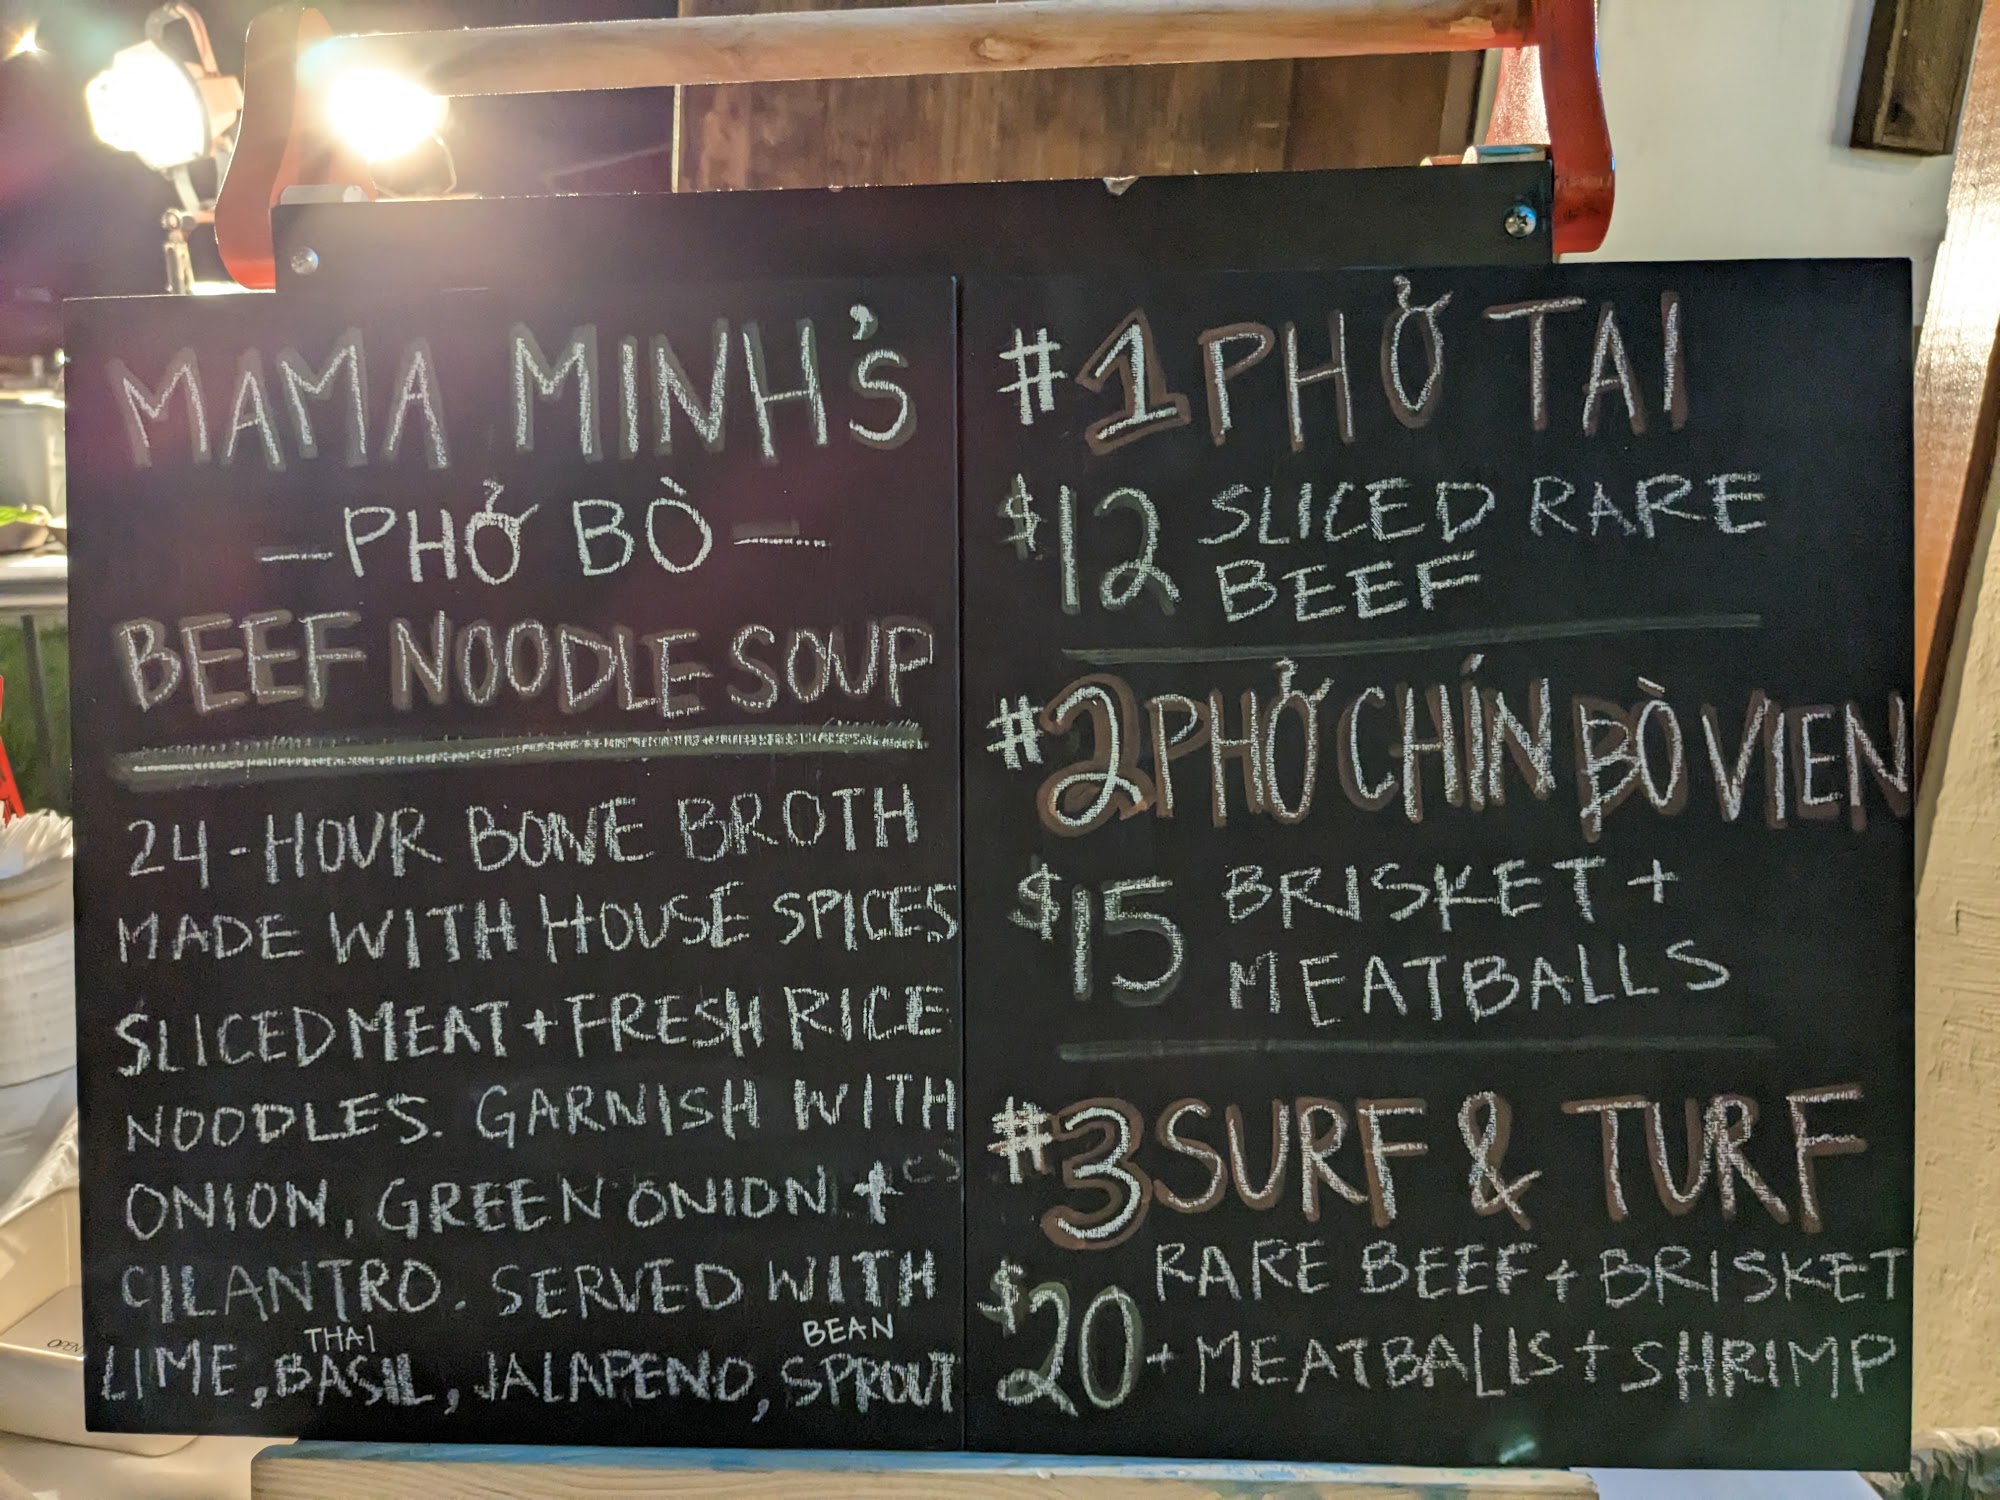 MAMA MINH'S
—PHỞ BÒ—
BEEF NOODLE SOUP
24-HOUR BONE BROTH
MADE WITH HOUSE SPICES
SLICED MEAT + FRESH RICE
NOODLES. GARNISH WITH
ONION, GREEN ONION +
CILANTRO. SERVED WITH
LIME, THAI BASIL, JALAPENO, BEAN SPROUT
#1 PHỞ TAI
$12 SLICED RARE
BEEF
#2 PHỞ CHÍN BÒ VIEN
$15 BRISKET +
MEATBALLS
#3 SURF & TURF
$20 RARE BEEF + BRISKET
+ MEATBALLS + SHRIMP